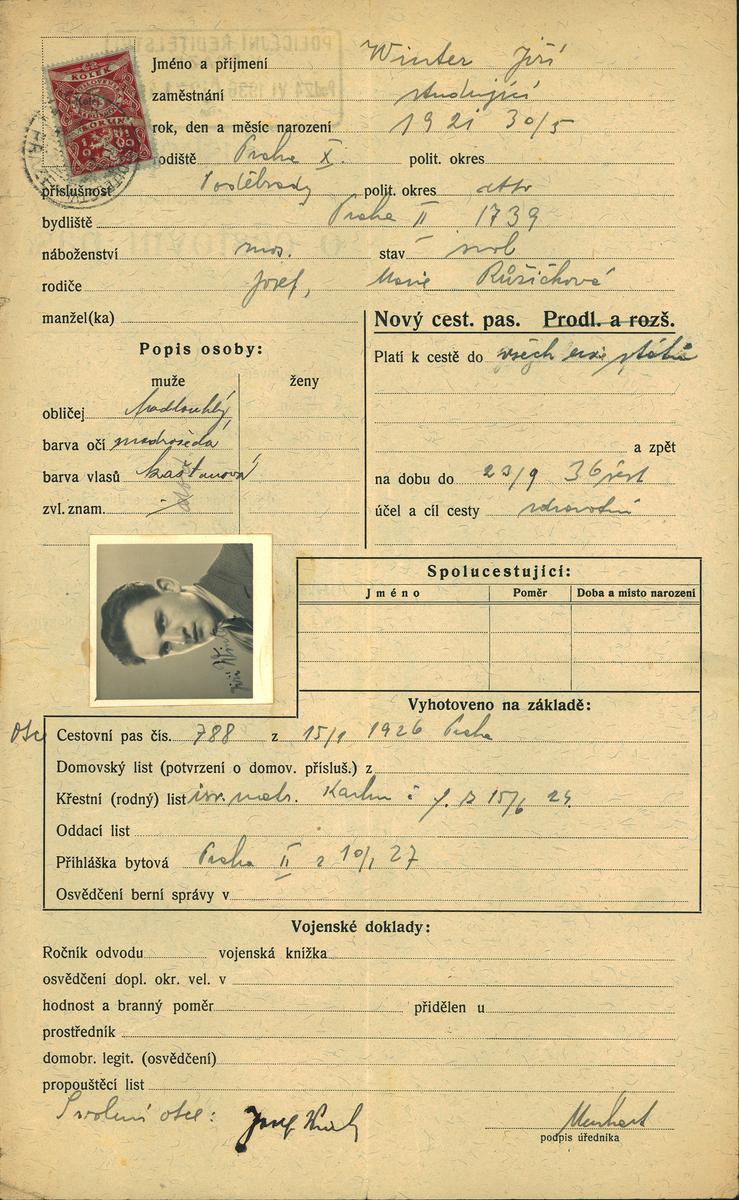 Jméno a příjmení Winter Jiří
zaměstnání studující
rok, den a měsíc narození 1921 30/5
rodiště Praha X. polit. okres
příslušnost Poděbrady polit. okres dtto
bydliště Praha II 1739
náboženství mos. stav svob
rodiče Josef, Marie Růžičková
manžel(ka)
Nový cest. pas. Prodl. a rozš.
Popis osoby:
Platí k cestě do všech států
muže ženy
obličej podlouhlý
a zpět
barva očí modrošedá
barva vlasů kaštanová
na dobu do 23/9 36
zvl. znam.
účel a cíl cesty zdravotní
Spolucestující:
Jméno Poměr Doba a místo narození
Vyhotoveno na základě:
Otec Cestovní pas čís. 788 z 15/1 1926 Praha
Domovský list (potvrzení o domov. přísluš.) z
Křestní (rodný) list isr. matr. Karlín z 15/6 21
Oddací list
Přihláška bytová Praha II z 10/1 27
Osvědčení berní správy v
Vojenské doklady:
Ročník odvodu vojenská knížka
osvědčení dopl. okr. vel. v
hodnost a branný poměr přidělen u
prostředník
domobr. legit. (osvědčení)
propouštěcí list
Svolení otce: Josef
podpis úředníka